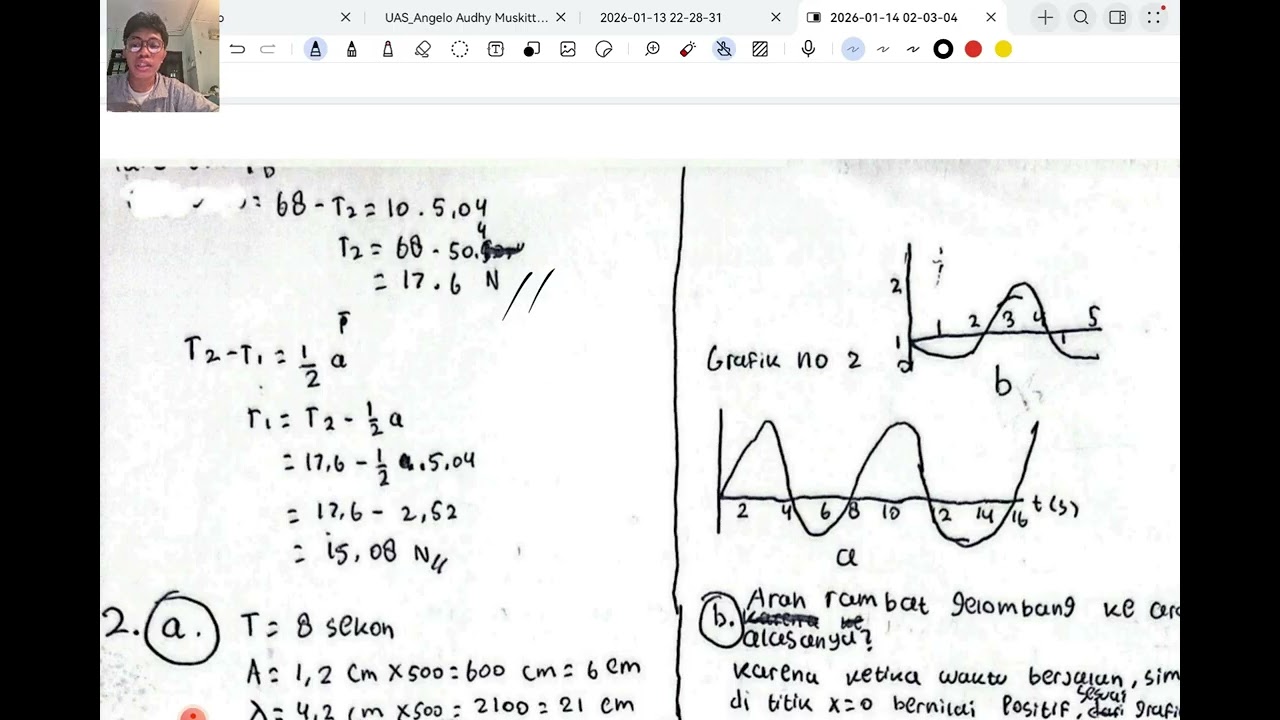 UAS_Angelo Audhy Muskitt...
2026-01-13 22-28-31
2026-01-14 02-03-04
= 68 - T2 = 10 . 5,04
T2 = 68 - 50.4
= 17.6 N //
T2 - T1 = 1/2 a
T1 = T2 - 1/2 a
= 17,6 - 1/2 . 5,04
= 17,6 - 2,52
= 15,08 N //
2. a. T = 8 sekon
A = 1,2 cm x 500 = 600 cm = 6 cm
λ = 4,2 cm x 500 = 2100 = 21 cm
2
1 2 3 4 5
1
0
b
Grafik no 2
2 4 6 8 10 12 14 16 t(s)
a
b. Arah rambat gelombang ke
alasannya?
Karena ketika waktu berjalan, sim
di titik x=0 bernilai Positif, sesuai dari grafi